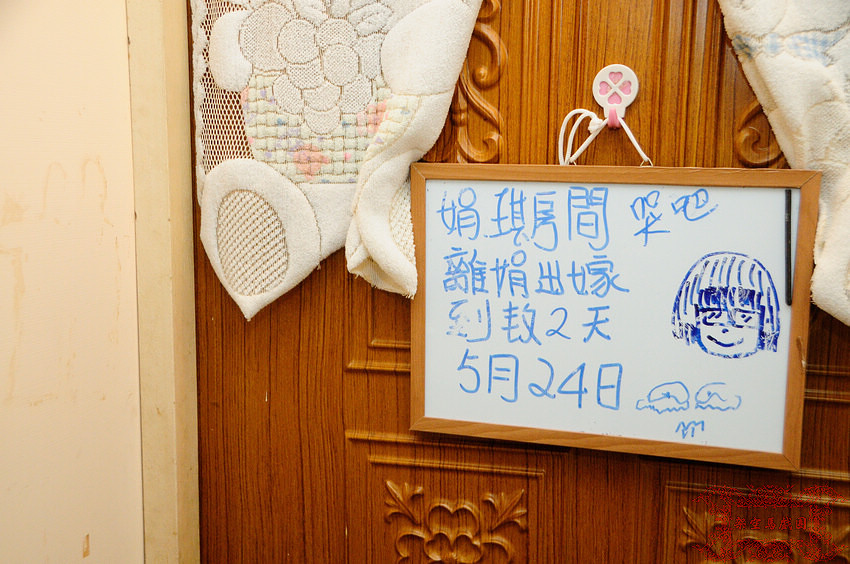 娟琪房間 哭吧
離娟出嫁
到數2天
5月24日